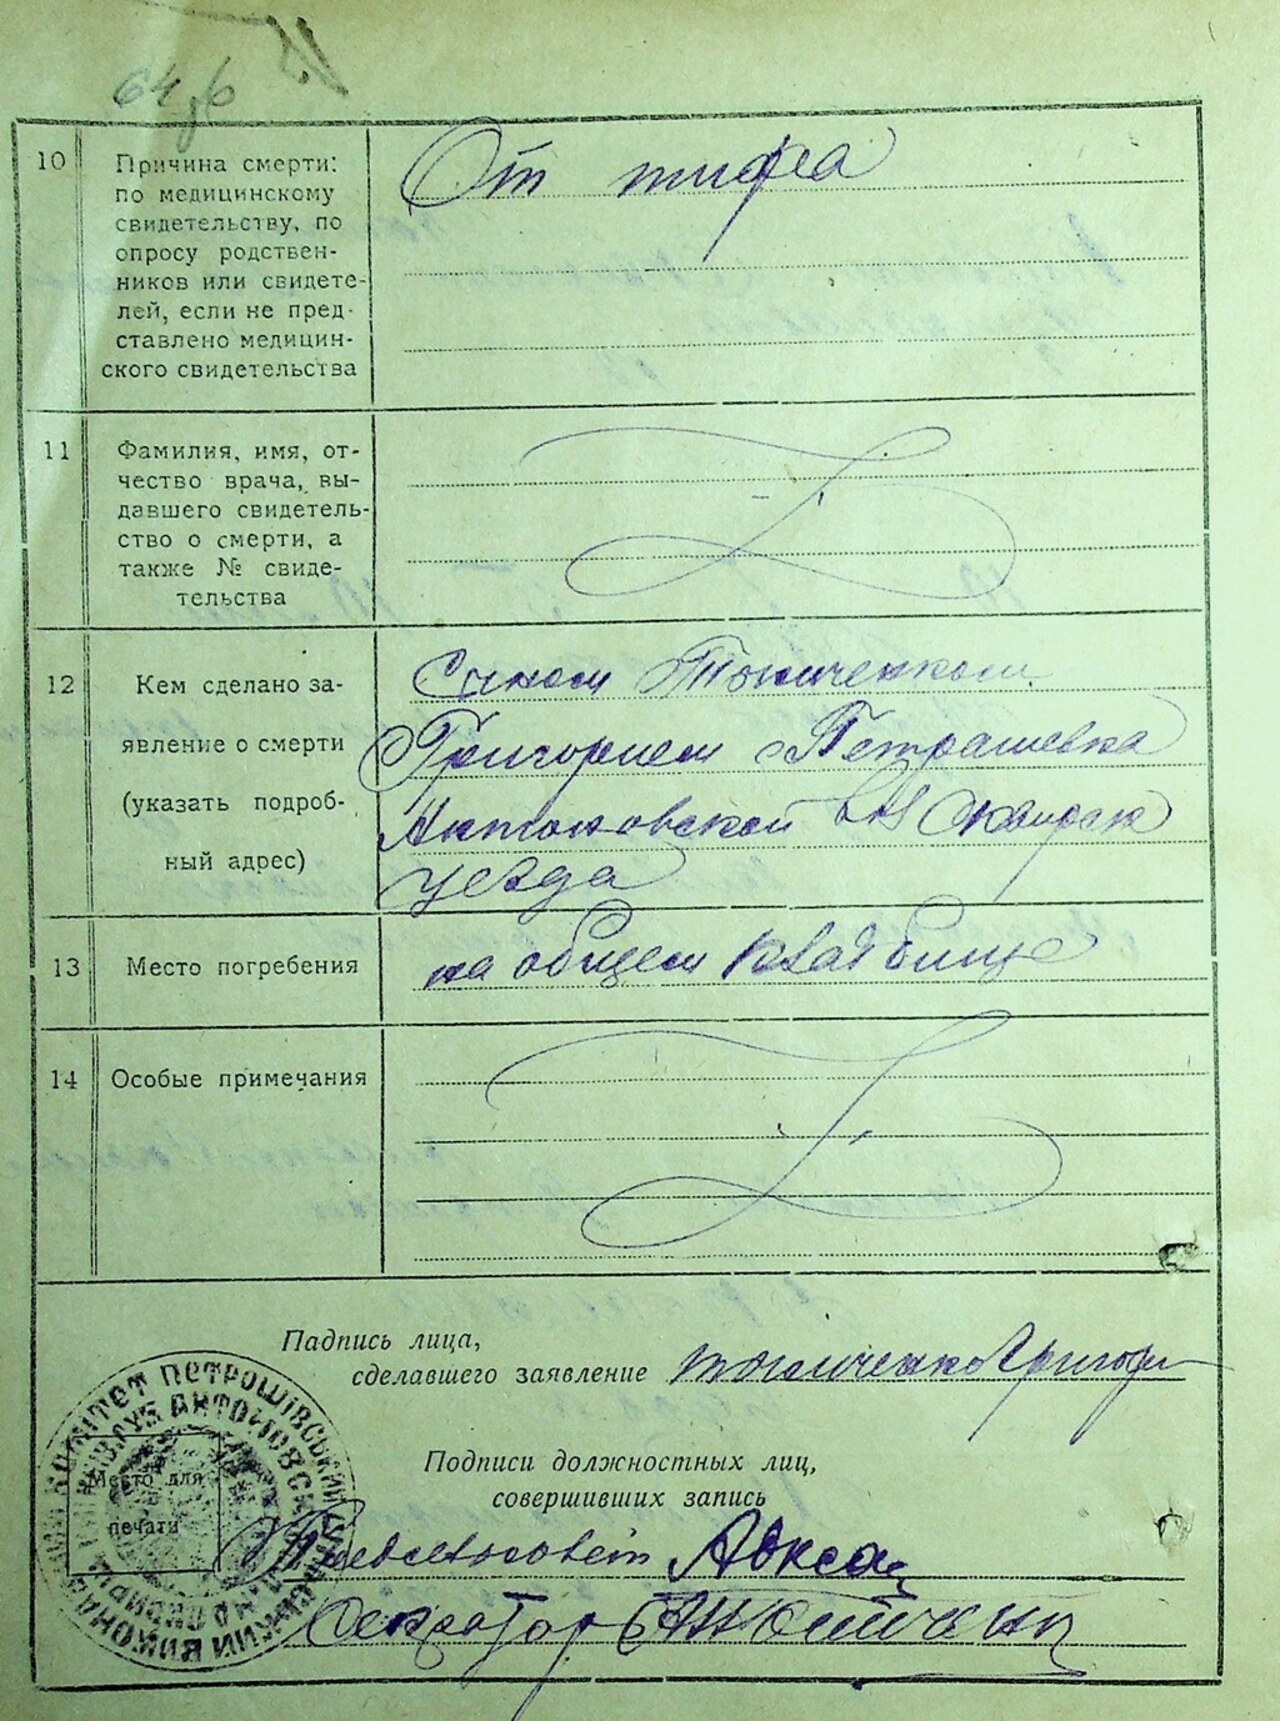 64 об
10 Причина смерти: От тифа
по медицинскому
свидетельству, по
опросу родствен-
ников или свидете-
лей, если не пред-
ставлено медицин-
ского свидетельства
11 Фамилия, имя, от-
чество врача, вы-
давшего свидетель-
ство о смерти, а
также № свиде-
тельства
12 Кем сделано за-
явление о смерти
(указать подроб-
ный адрес)
Сыном Томиченком
Григорием с Петрашевка
Антоновской вл Сквирск
уезда
13 Место погребения на общем кладбище
14 Особые примечания
Падпись лица,
сделавшего заявление Томиченко Григори
Подписи должностных лиц,
совершивших запись
Место для
печати
Секретар
ВИКОНАВЧИЙ КОМІТЕТ ПЕТРОШІВСЬКИЙ СІЛЬСЬКИЙ
АНТОНОВСЬК